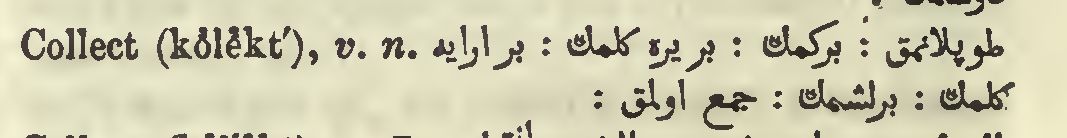 Collect (kŏlĕkt′), v. n. طوپلانمق : بركمك : بر يره كلمك : بر ارايه
كلمك : برلشمك : جمع اولمق :